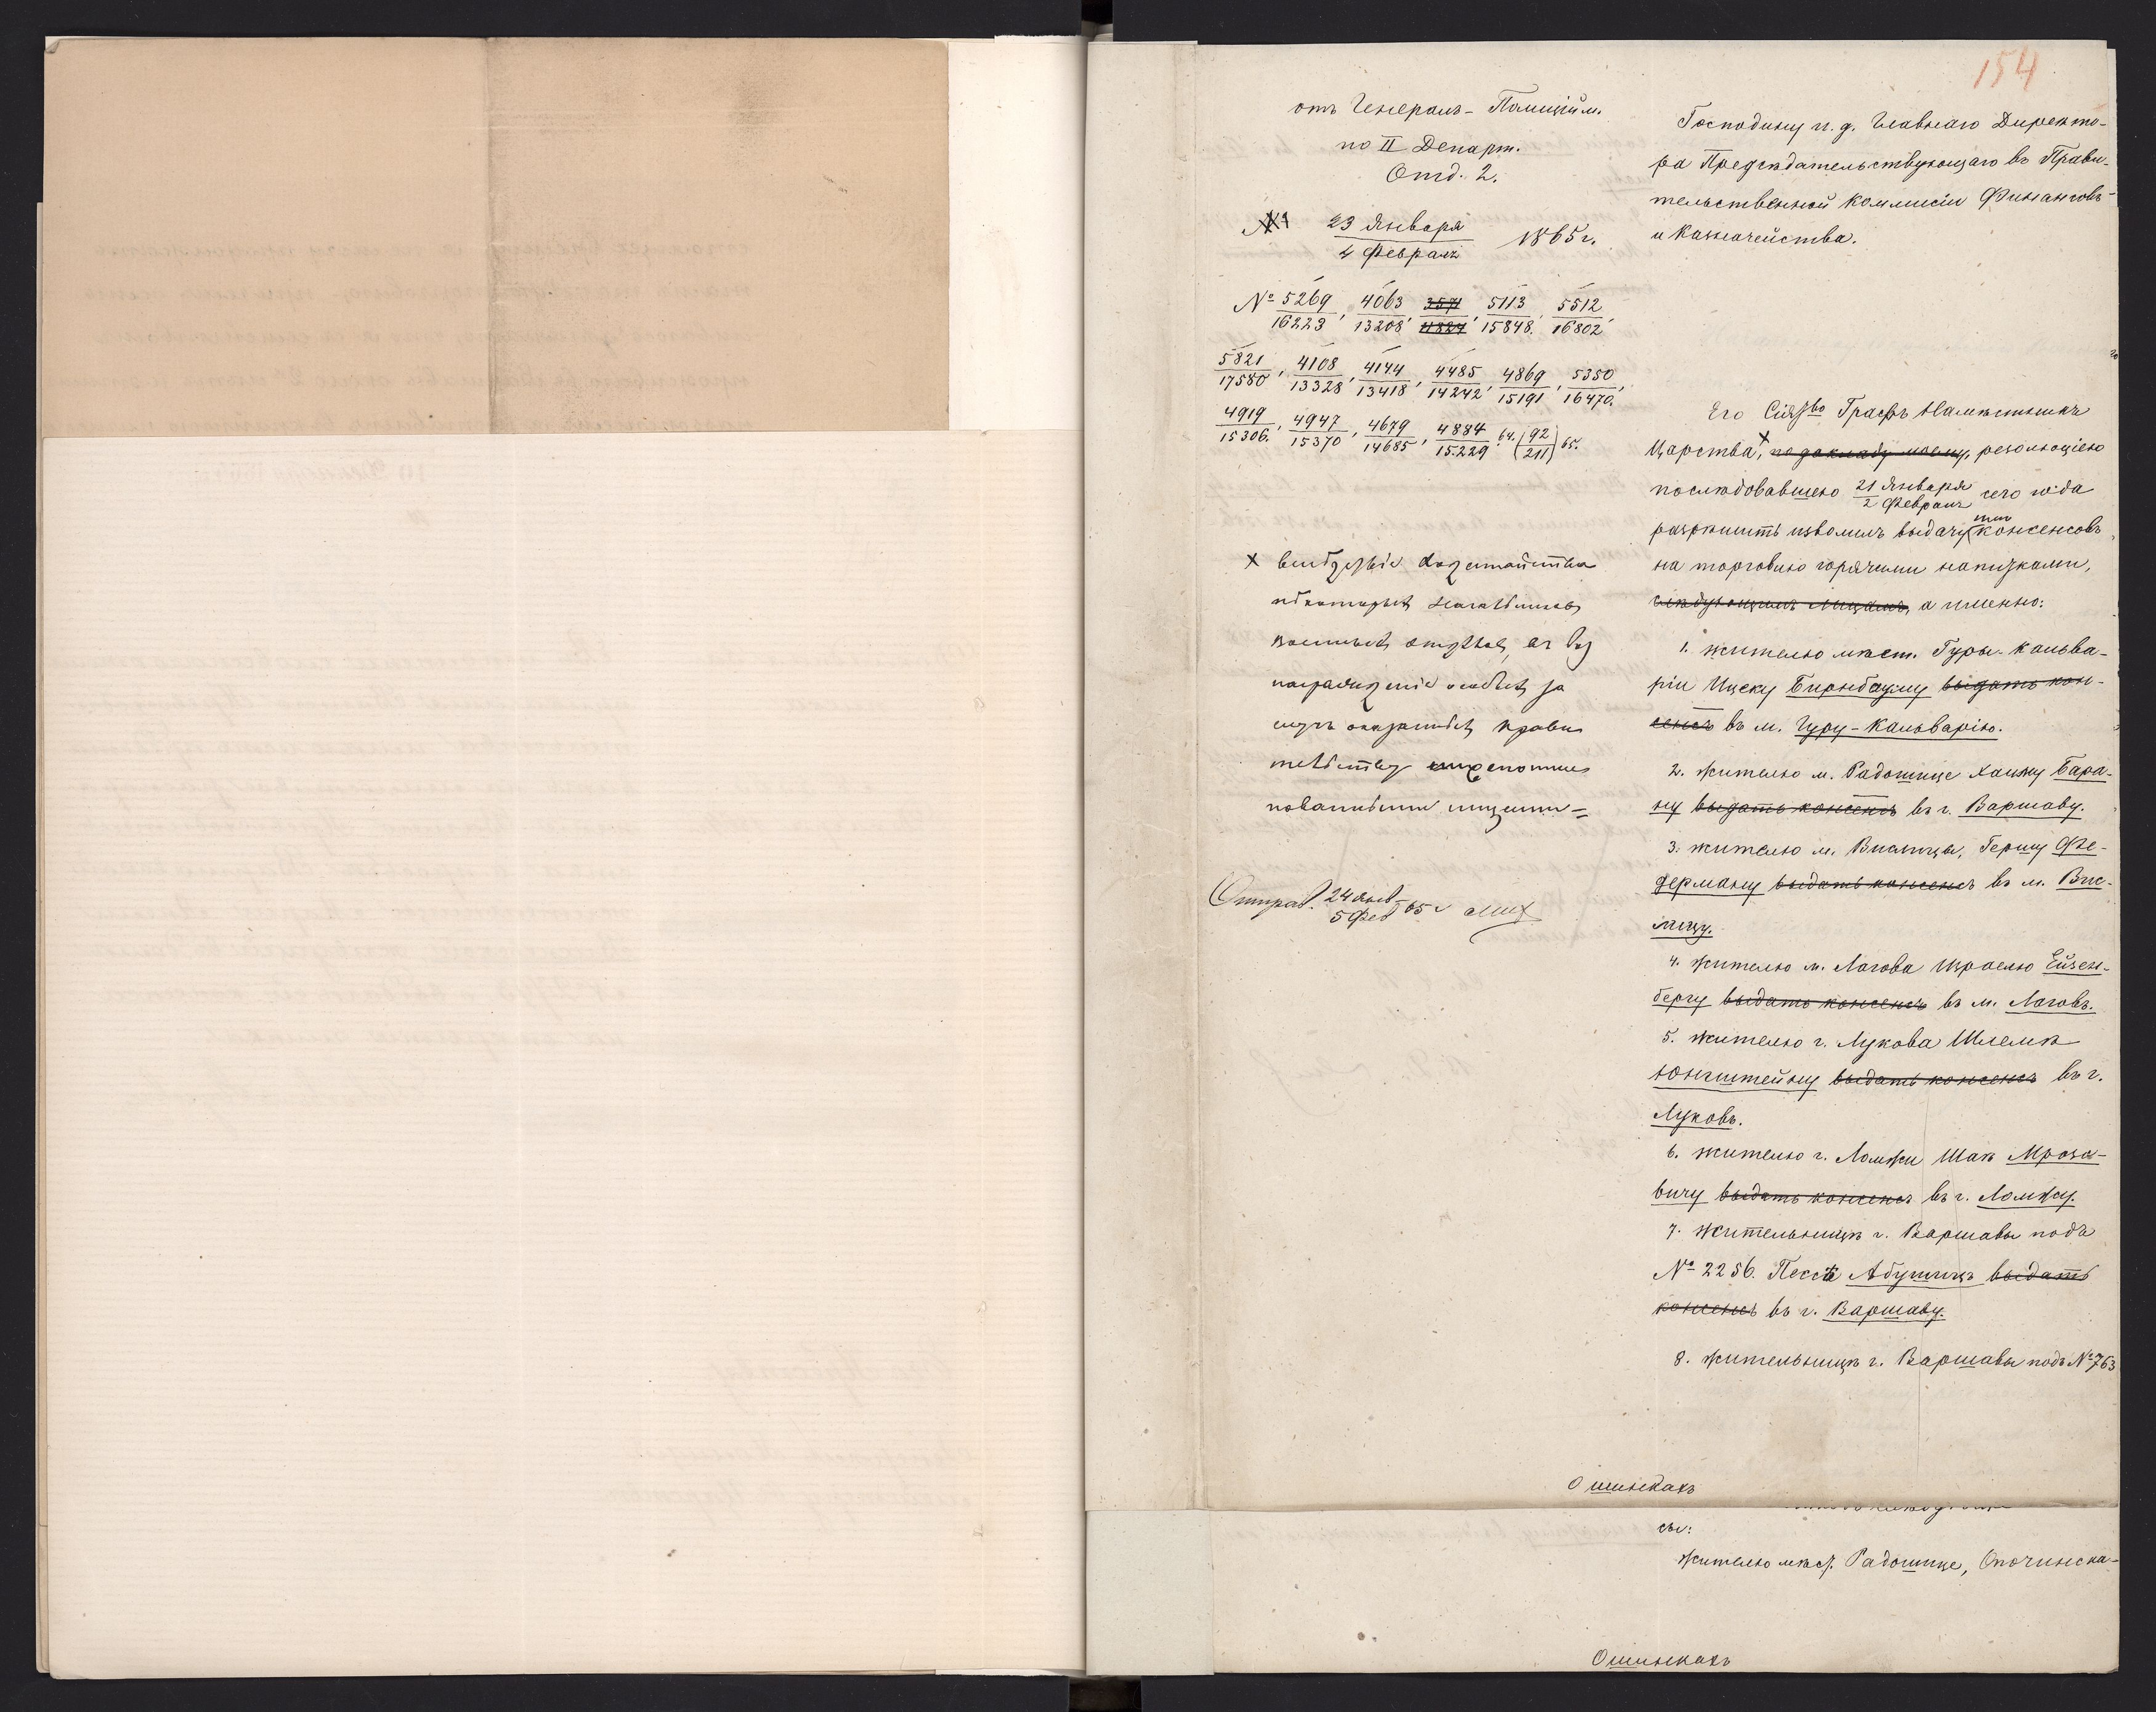 154
отъ Генералъ-Полиційм.
по II Департ.
Отд. 2.
23 Января
4 Февраля 1865 г.
№ 5269/16223, 4063/13208, 3571/11824, 5113/15848, 5512/16802,
5821/17580, 4108/13328, 4144/13418, 4485/14242, 4869/15191, 5350/16470,
4919/15306, 4947/15370, 4679/14685, 4884/15229 64. (92/211) 65.
х вслѣдствіе ходатайства
нѣкоторыхъ Начальниковъ
военныхъ отдѣловъ, въ воз
награжденіе особыхъ за
слугъ оказанныхъ прави
тельству нижепоиме
нованными лицами =
Отправ. 24 Янв 5 Фев 65 г
Господину и. д. Главнаго Директо-
ра Предсѣдательствующаго въ Прави-
тельственной Коммисіи Финансовъ
и Казначейства.
Его Сіяство Графъ Намѣстникъ
Царства, х по докладу моему, резолюціею
послѣдовавшею 21 Января 2 Февраля сего года
разрѣшить изволилъ выдачу консенсовъ
на торговлю горячими напитками,
слѣдующимъ лицамъ, а именно:
1. жителю мѣст. Гуры-Кальва-
ріи Ицеку Бирнбауму выдать кон-
сенсъ въ м. Гуру-Кальварію.
2. жителю м. Радошице Хаиму Бара-
ну выдать консенсъ въ г. Варшаву.
3. жителю м. Вислицы, Гершу Фе-
дерману выдать консенсъ въ м. Вис-
лицу.
4. жителю м. Лагова Израелю Ейзен-
бергу выдать консенсъ въ м. Лаговъ.
5. жителю г. Лукова Шлемѣ
Юнгштейну выдать консенсъ въ г.
Луковъ.
6. жителю г. Ломжи Шаѣ Мрозо-
вичу выдать консенсъ въ г. Ломжу.
7. Жительницѣ г. Варшавы подъ
№ 2256. Пессѣ Абушицъ выдать
консенсъ въ г. Варшаву.
8. жительницѣ г. Варшавы подъ № 763
О шинкахъ
сы:
Жителю мѣст. Радошице, Опочинска-
О шинкахъ